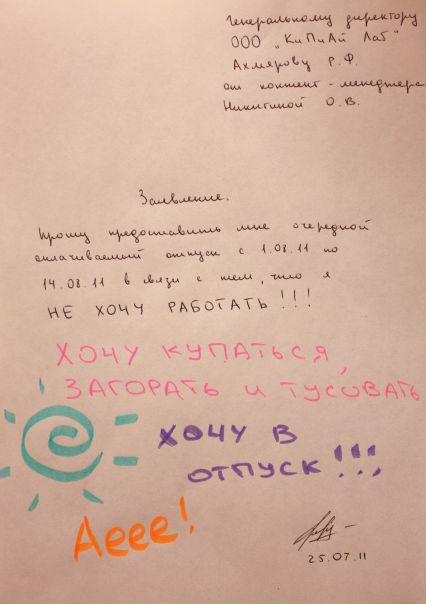 Генеральному директору
ООО „КиПиАй Лаб"
Ахмярову Р.Ф.
от контент-менеджера
Никитиной О.В.
Заявление.
Прошу предоставить мне очередной
оплачиваемый отпуск с 1.08.11 по
14.08.11 в связи с тем, что я
НЕ ХОЧУ РАБОТАТЬ!!!
ХОЧУ КУПАТЬСЯ,
ЗАГОРАТЬ И ТУСОВАТЬ
ХОЧУ В
ОТПУСК!!!
Аеее!
25.07.11